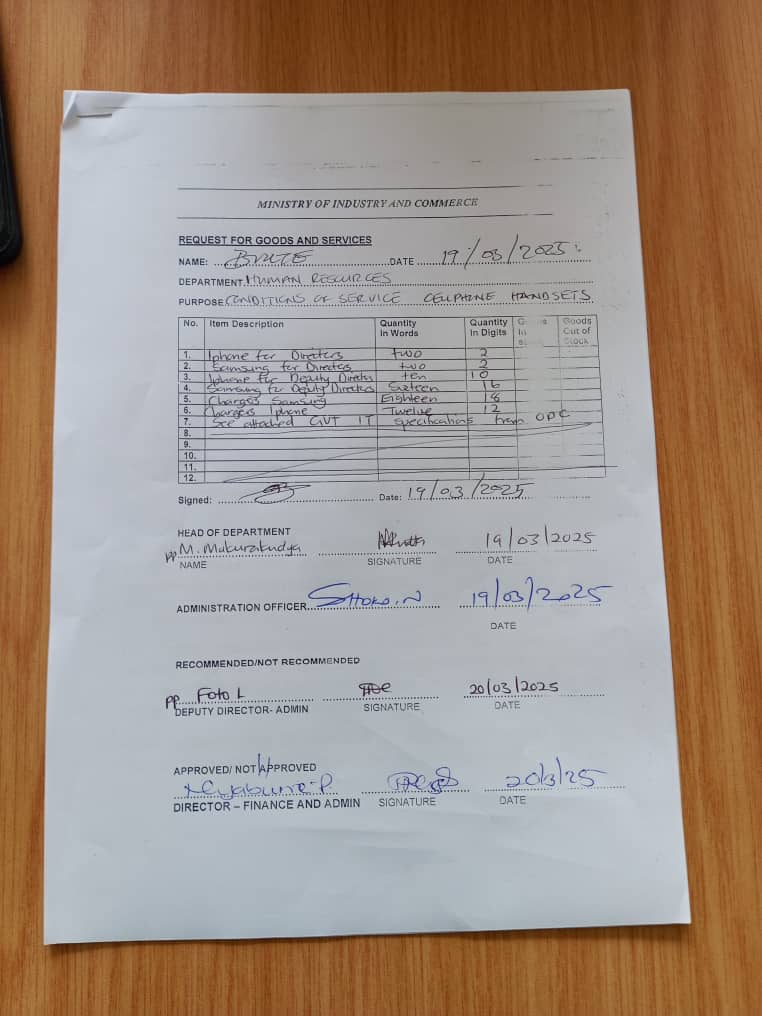 MINISTRY OF INDUSTRY AND COMMERCE
REQUEST FOR GOODS AND SERVICES
NAME: BRUTE DATE 19/03/2025
DEPARTMENT: HUMAN RESOURCES
PURPOSE CONDITIONS OF SERVICE CELLPHONE HANDSETS
No. Item Description Quantity In Words Quantity In Digits In Goods Out of Stock
1. Iphone for Directors two 2
2. Samsung for Directors two 2
3. Iphone for Deputy Director ten 10
4. Samsung for Deputy Directors Sixteen 16
5. Chargers Samsung Eighteen 18
6. Chargers Iphone Twelve 12
7. See attached GVT IT specifications from OPC
8.
9.
10.
11.
12.
Signed: Date: 19/03/2025
HEAD OF DEPARTMENT
pp M. Mukurakudya 19/03/2025
NAME SIGNATURE DATE
ADMINISTRATION OFFICER SHOKO.N 19/03/2025
DATE
RECOMMENDED/NOT RECOMMENDED
pp Foto L 20/03/2025
DEPUTY DIRECTOR- ADMIN SIGNATURE DATE
APPROVED/ NOT APPROVED
20/3/25
DIRECTOR – FINANCE AND ADMIN SIGNATURE DATE